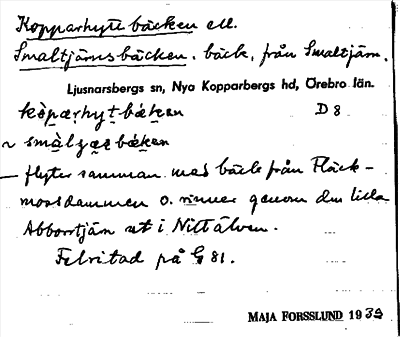 Kopparhyttebäcken ell.
Smaltjärnsbäcken. bäck, från Smaltjärn.
Ljusnarsbergs sn, Nya Kopparbergs hd, Örebro län.
D 8
~
— flyter samman med bäck från Fläck-
mossdammen o. rinner genom den lilla
Abborrtjärn ut i Nittälven.
Felritad på G 81.
MAJA FORSSLUND 19